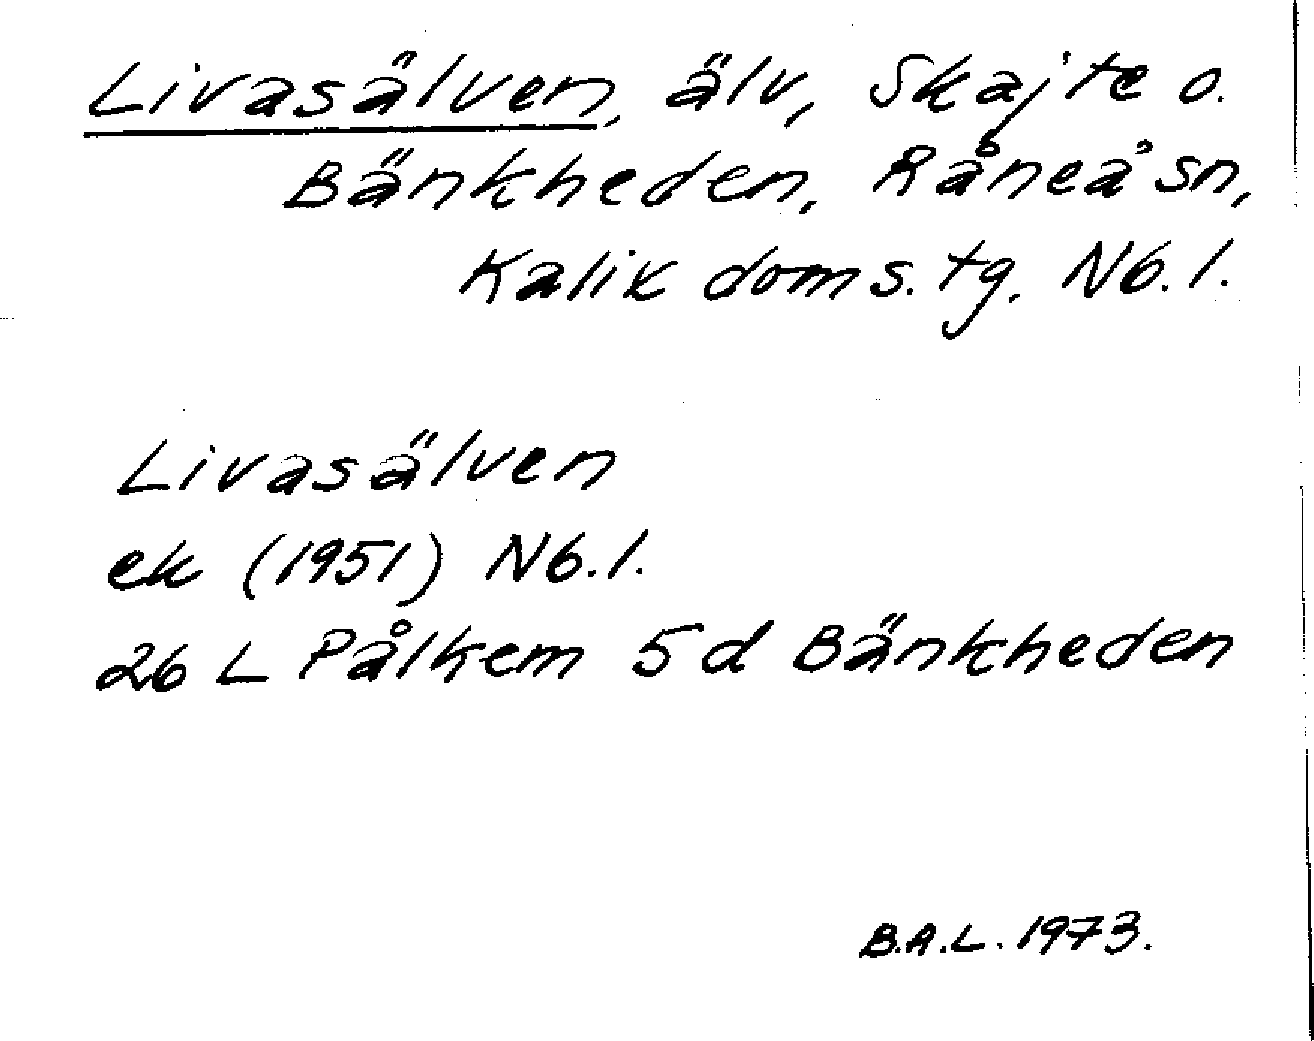 Livasälven, älv, Skajte o.
Bänkheden, Råneå sn,
Kalik doms. tg. Nb. l.
Livasälven
ek (1951) Nb. l.
26 L Pålkem 5 d Bänkheden
B.A.L. 1973.